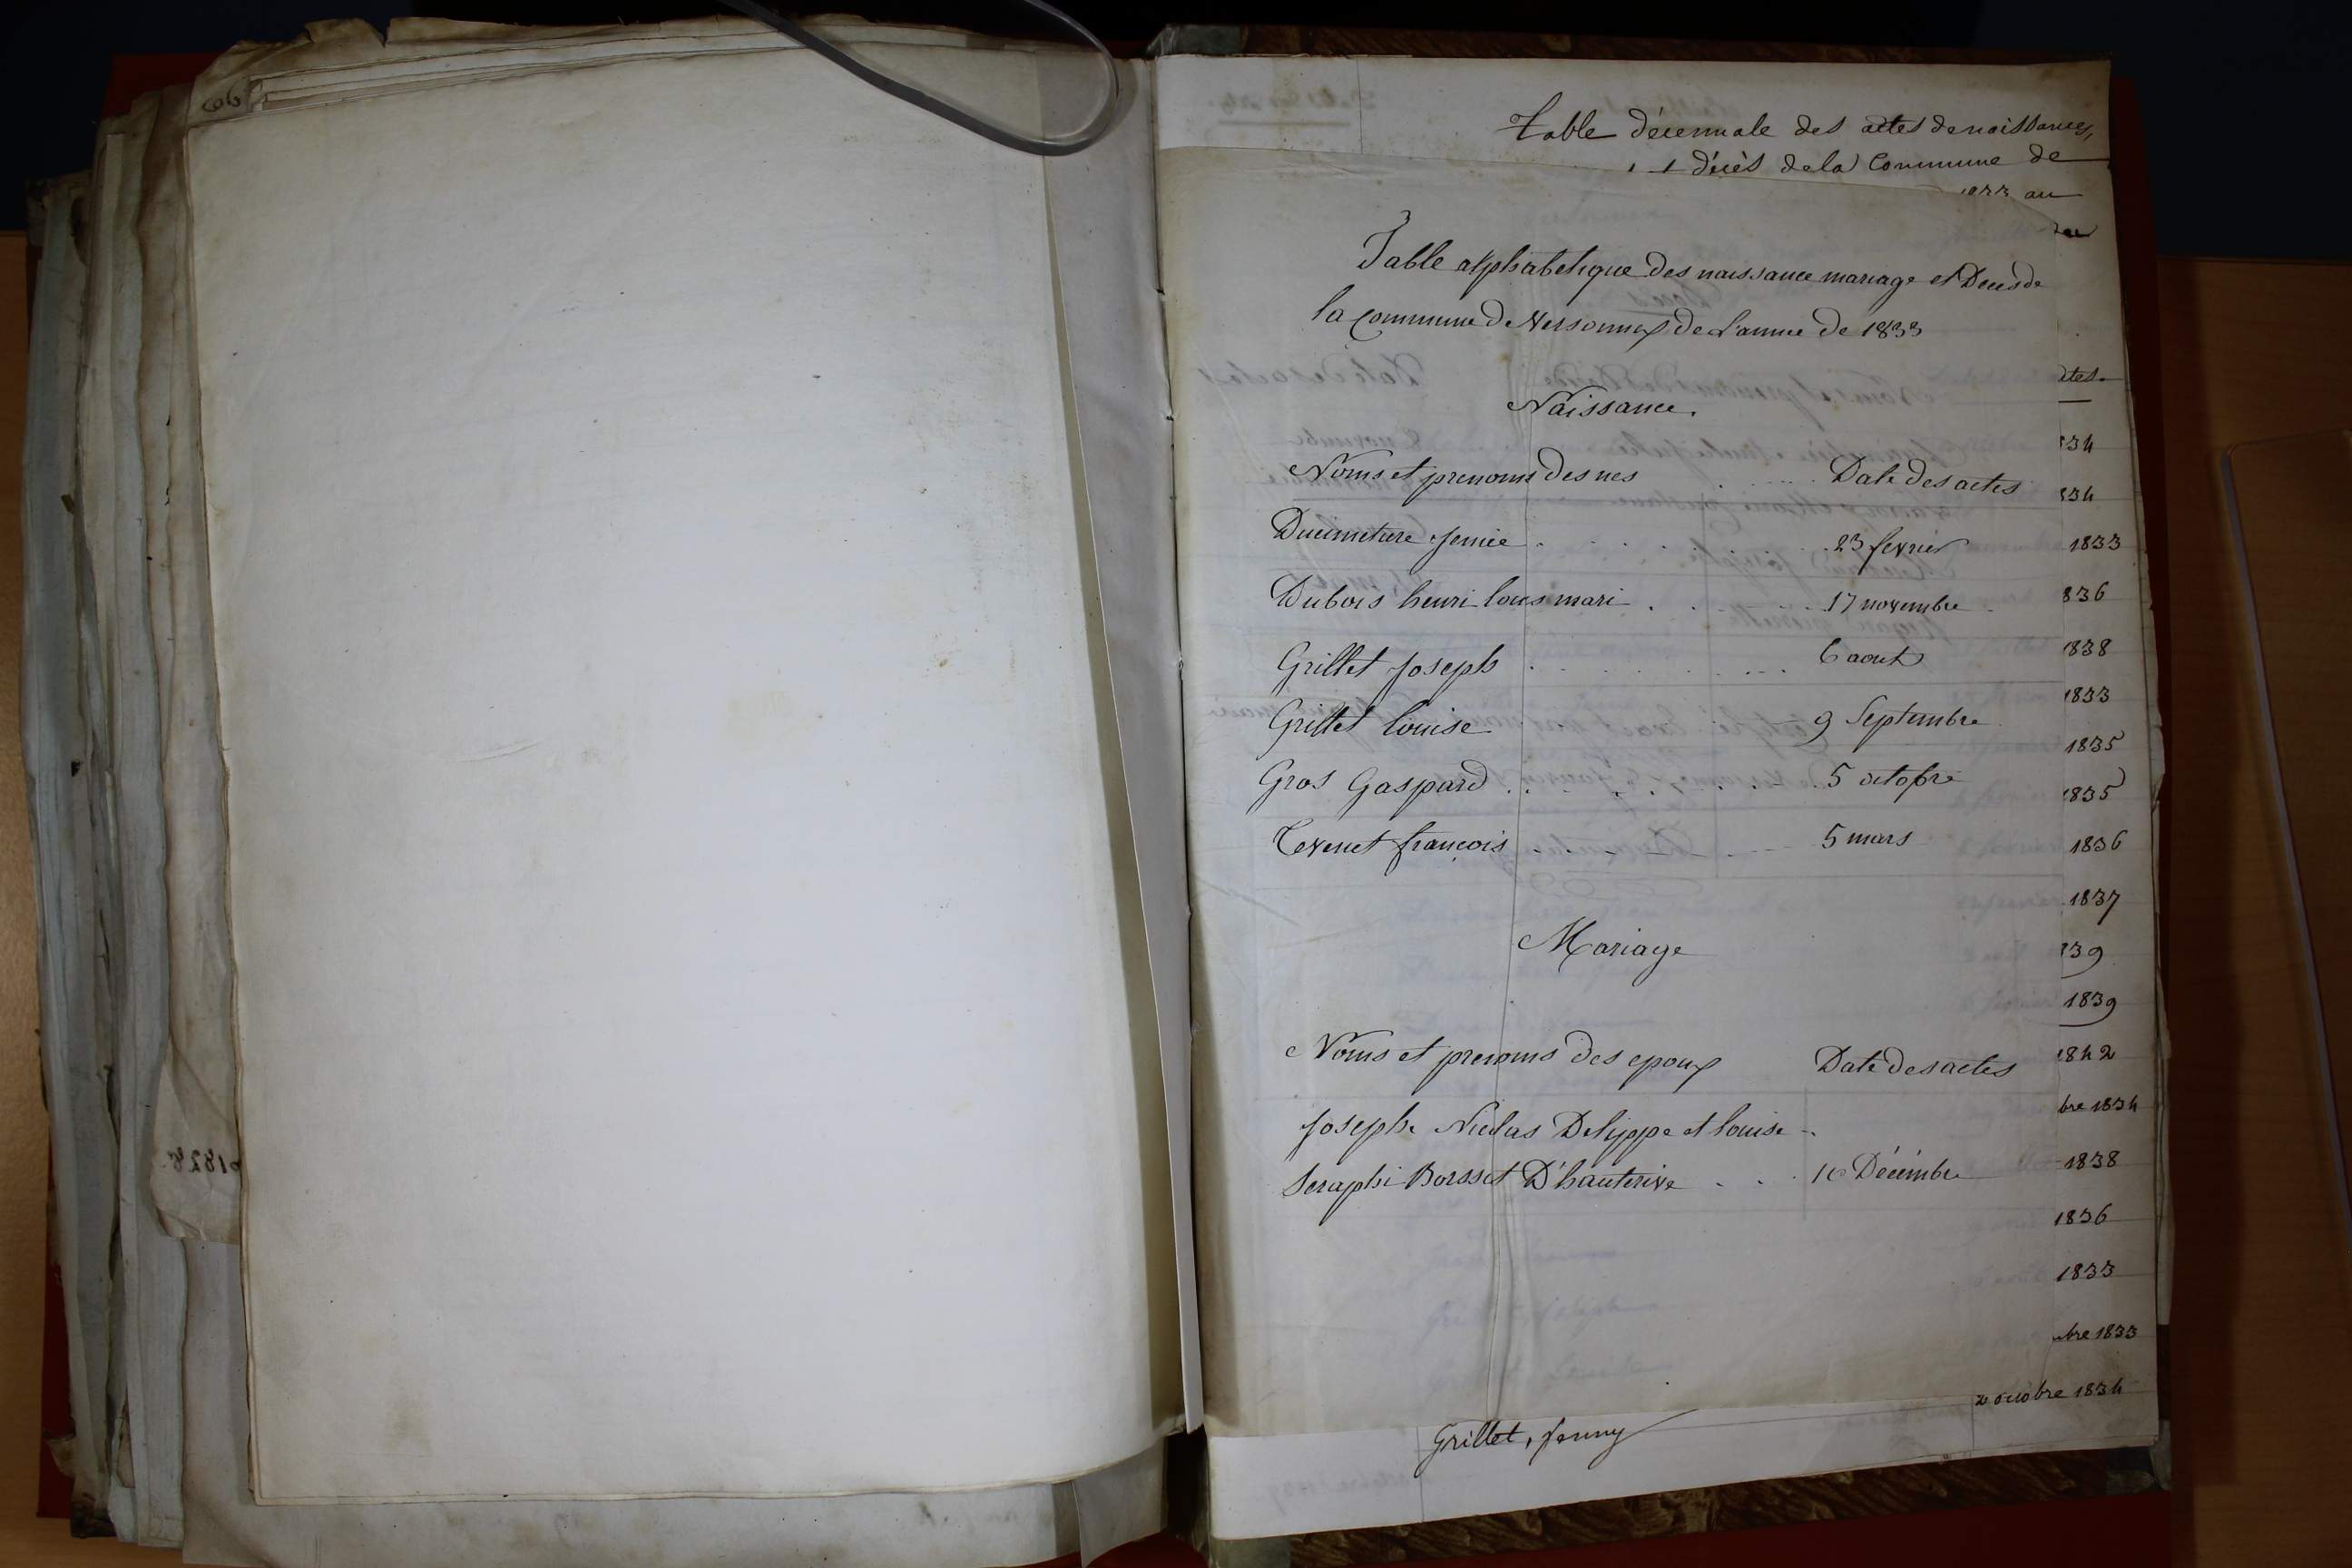 Table décennale des actes de naissances,
décès de la Commune de
1833 au
Table alphabetique des naissance mariage et Deces de
la commune de Versonnex de l'annee de 1833
Naissance.
Noms et prenoms des nes Date des actes
Ducimetiere Jennie 23 fevrier
Dubois henri louis mari 17 novembre
Grillet Joseph 6 aout
Grillet louise 9 Septembre
Gros Gaspard 5 octobre
Tevenet françois 5 mars
Mariage
Noms et prenoms des epoux Date des actes
Joseph Nicolas Delippe et louise
Seraphi Borsset D'hauterive 10 Décembre
ctes.
834
834
1833
836
1838
1833
1835
1835
1836
1837
839
1839
1842
bre 1834
1838
1836
1833
mbre 1833
Grillet, Jenny 2 octobre 1834
1828